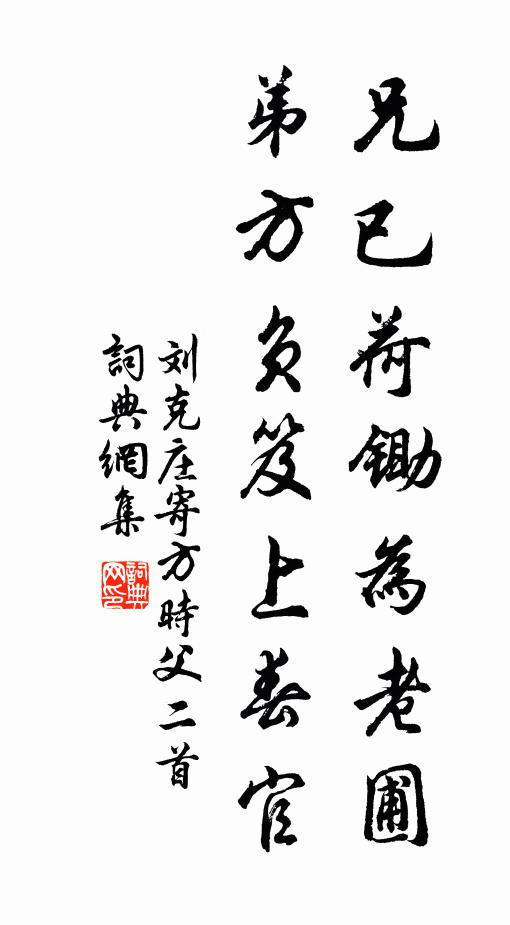 兄已荷鋤為老圃
弟方负笈上春官
刘克庄寄方時父二首
詞典網集
詞典网印